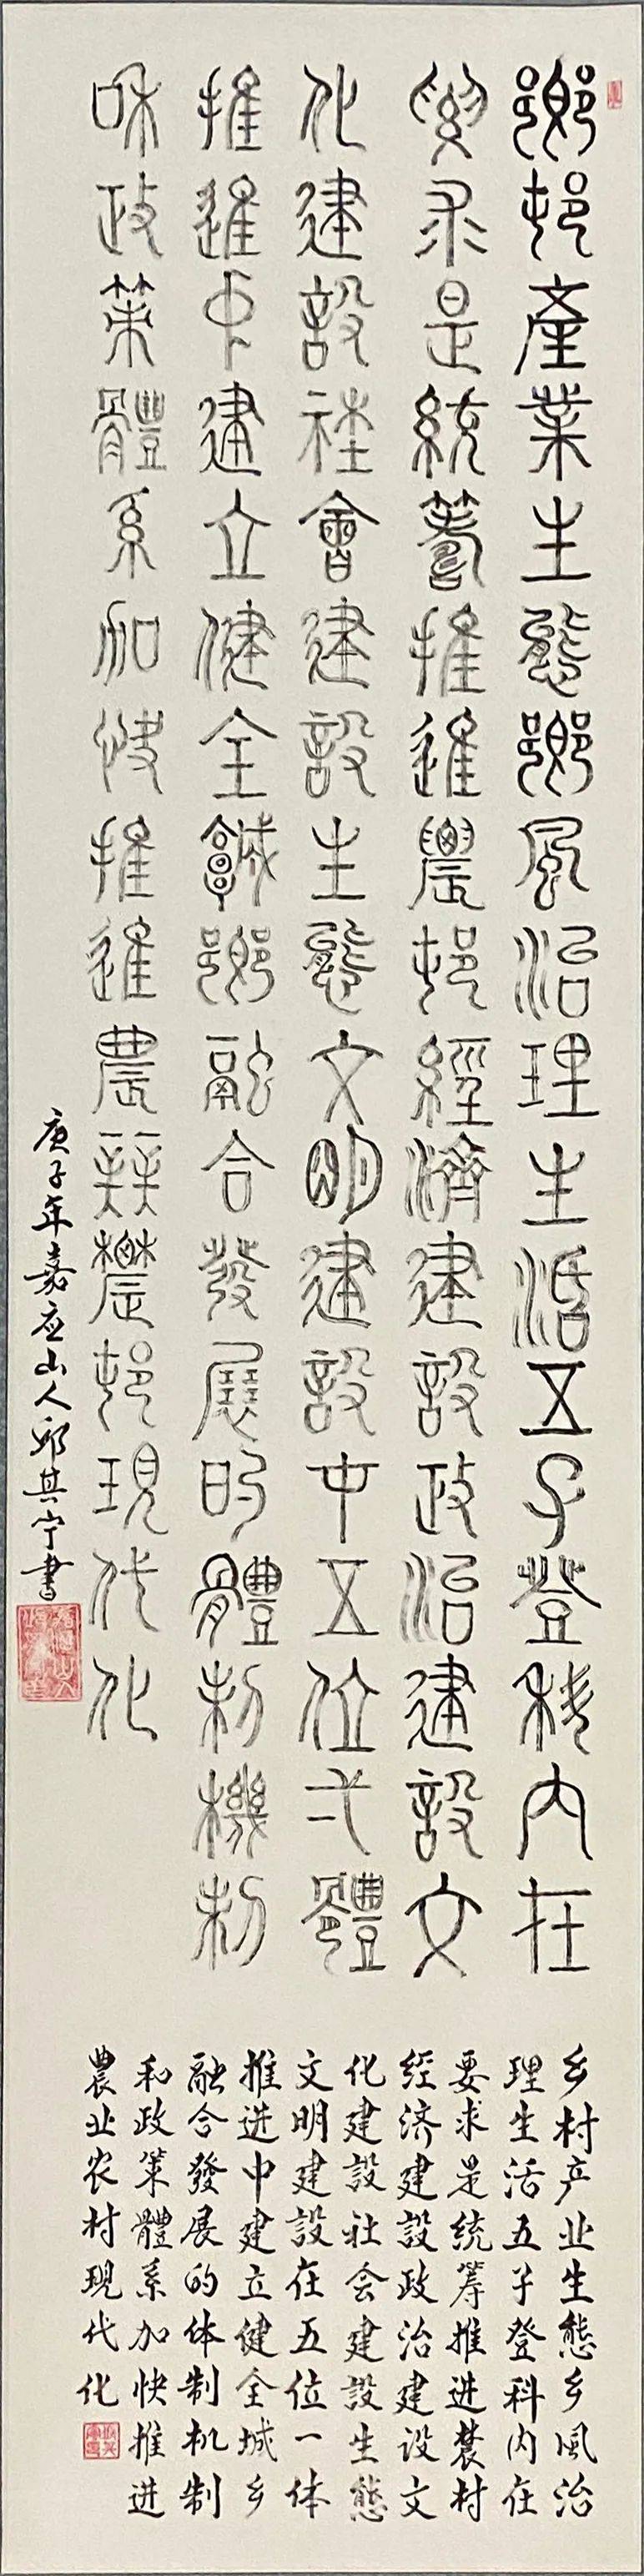 鄉邨產業生態鄉風治理生活五子登科内在
要求是統籌推進農邨經濟建設政治建設文
化建設社會建設生態文明建設中五位弌體
推進中建立健全城鄉融合發展的體制機制
和政策體系加快推進農業農邨現代化
庚子年嘉应山人邱其宁書
乡村产业生態乡风治
理生活五子登科内在
要求是统筹推进農村
经济建設政治建设文
化建設社会建設生態
文明建設在五位一体
推进中建立健全城乡
融合發展的体制机制
和政策體系加快推进
農业农村現代化